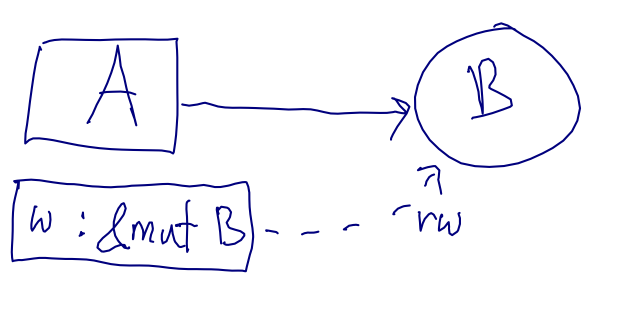 A
B
w : &mut B
rw